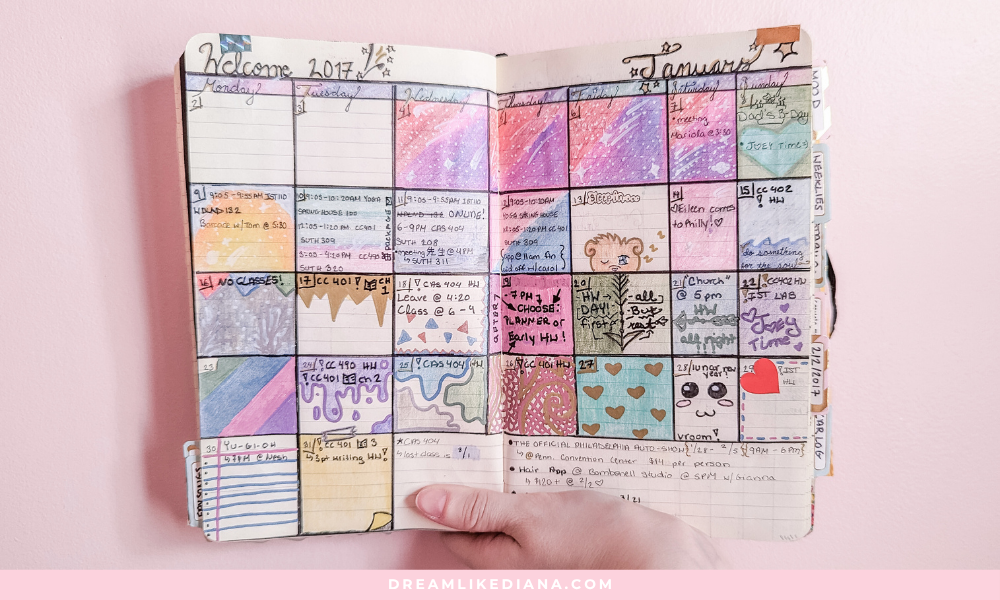 Welcome 2017
January
Monday
Tuesday
Wednesday
Thursday
Friday
Saturday
Sunday
2
3
4
5
6
7
•meeting
Mariola @ 3:30
Dad's B-Day
• JOEY Time
9
9:05-9:55AM IST110
WDLND 132
Barcade w/Tom @ 5:30
10
9:05-10:20AM YOGA
SPRING HOUSE 100
12:05-1:20 PM CC401
SUTH 309
3:05-4:20 PM CC490
SUTH 320
BIG PACKAGE
11
9:05-9:55AM IST110
WDLND 132 ONLINE!
6-9PM CAS 404
SUTH 208
•meeting 先生 @ 4PM
↳ SUTH 311
12
9:05-10:20AM
YOGA SPRING HOUSE
12:05-1:20 PM CC401
SUTH 309
app @ 11am An
w/ carol
13
z z z
14
Eileen comes
to Philly! ♡
15
CC 402
! HW
do something
for the soul
16
NO CLASSES!
17
! CC 401 CH
1
18
! CAS 404 HW
Leave @ 4:20
Class @ 6-9
AFTER 7
19
-7PM
CHOOSE:
PLANNER or
Early HW!
20
HW
DAY!
first
-all-
But
rest
21
"Church"
@ 5pm
HW
all night
22
! CC402 HW
! IST LAB
JOEY
Time
23
24
! CC 490 HW
! CC 401 Ch 2
25
! CAS 404 HW
26
! CC 401 HW
27
28
lunar new
year!
vroom!
29
! IST
HW
30
Yu-Gi-Oh
↳ 7PM @ Nesh
31
! CC 401 3
↳ 3pt writing HW!
★ CAS 404
↳ last class is 2/1
• THE OFFICIAL PHILADELPHIA AUTO-SHOW {1/28 - 2/5} {9AM - 6PM}
↳ @ Penn. Convention Center $14 per person
• Hair App @ Bombshell Studio @ 5PM w/Gianna
↳ $120+ @ 2/2 ♡
3/21
MOOD
WEEKLIES
2/2/2017
CAR LOG
DREAMLIKEDIANA.COM